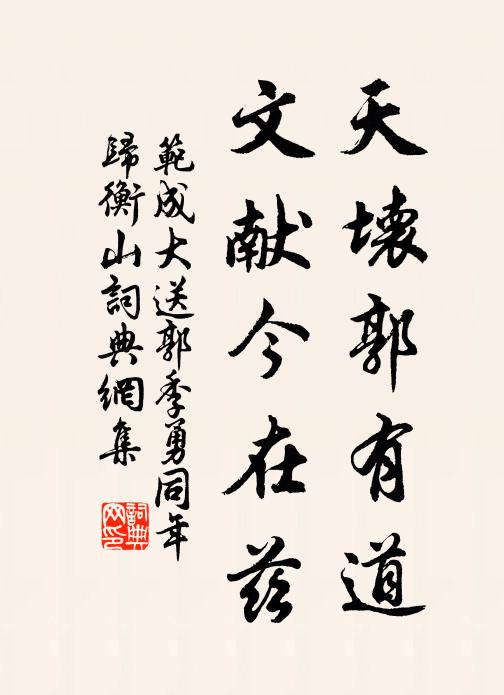 天壞郭有道
文献今在茲
範成大送郭季勇同年
歸衡山詞典網集
詞典
网印